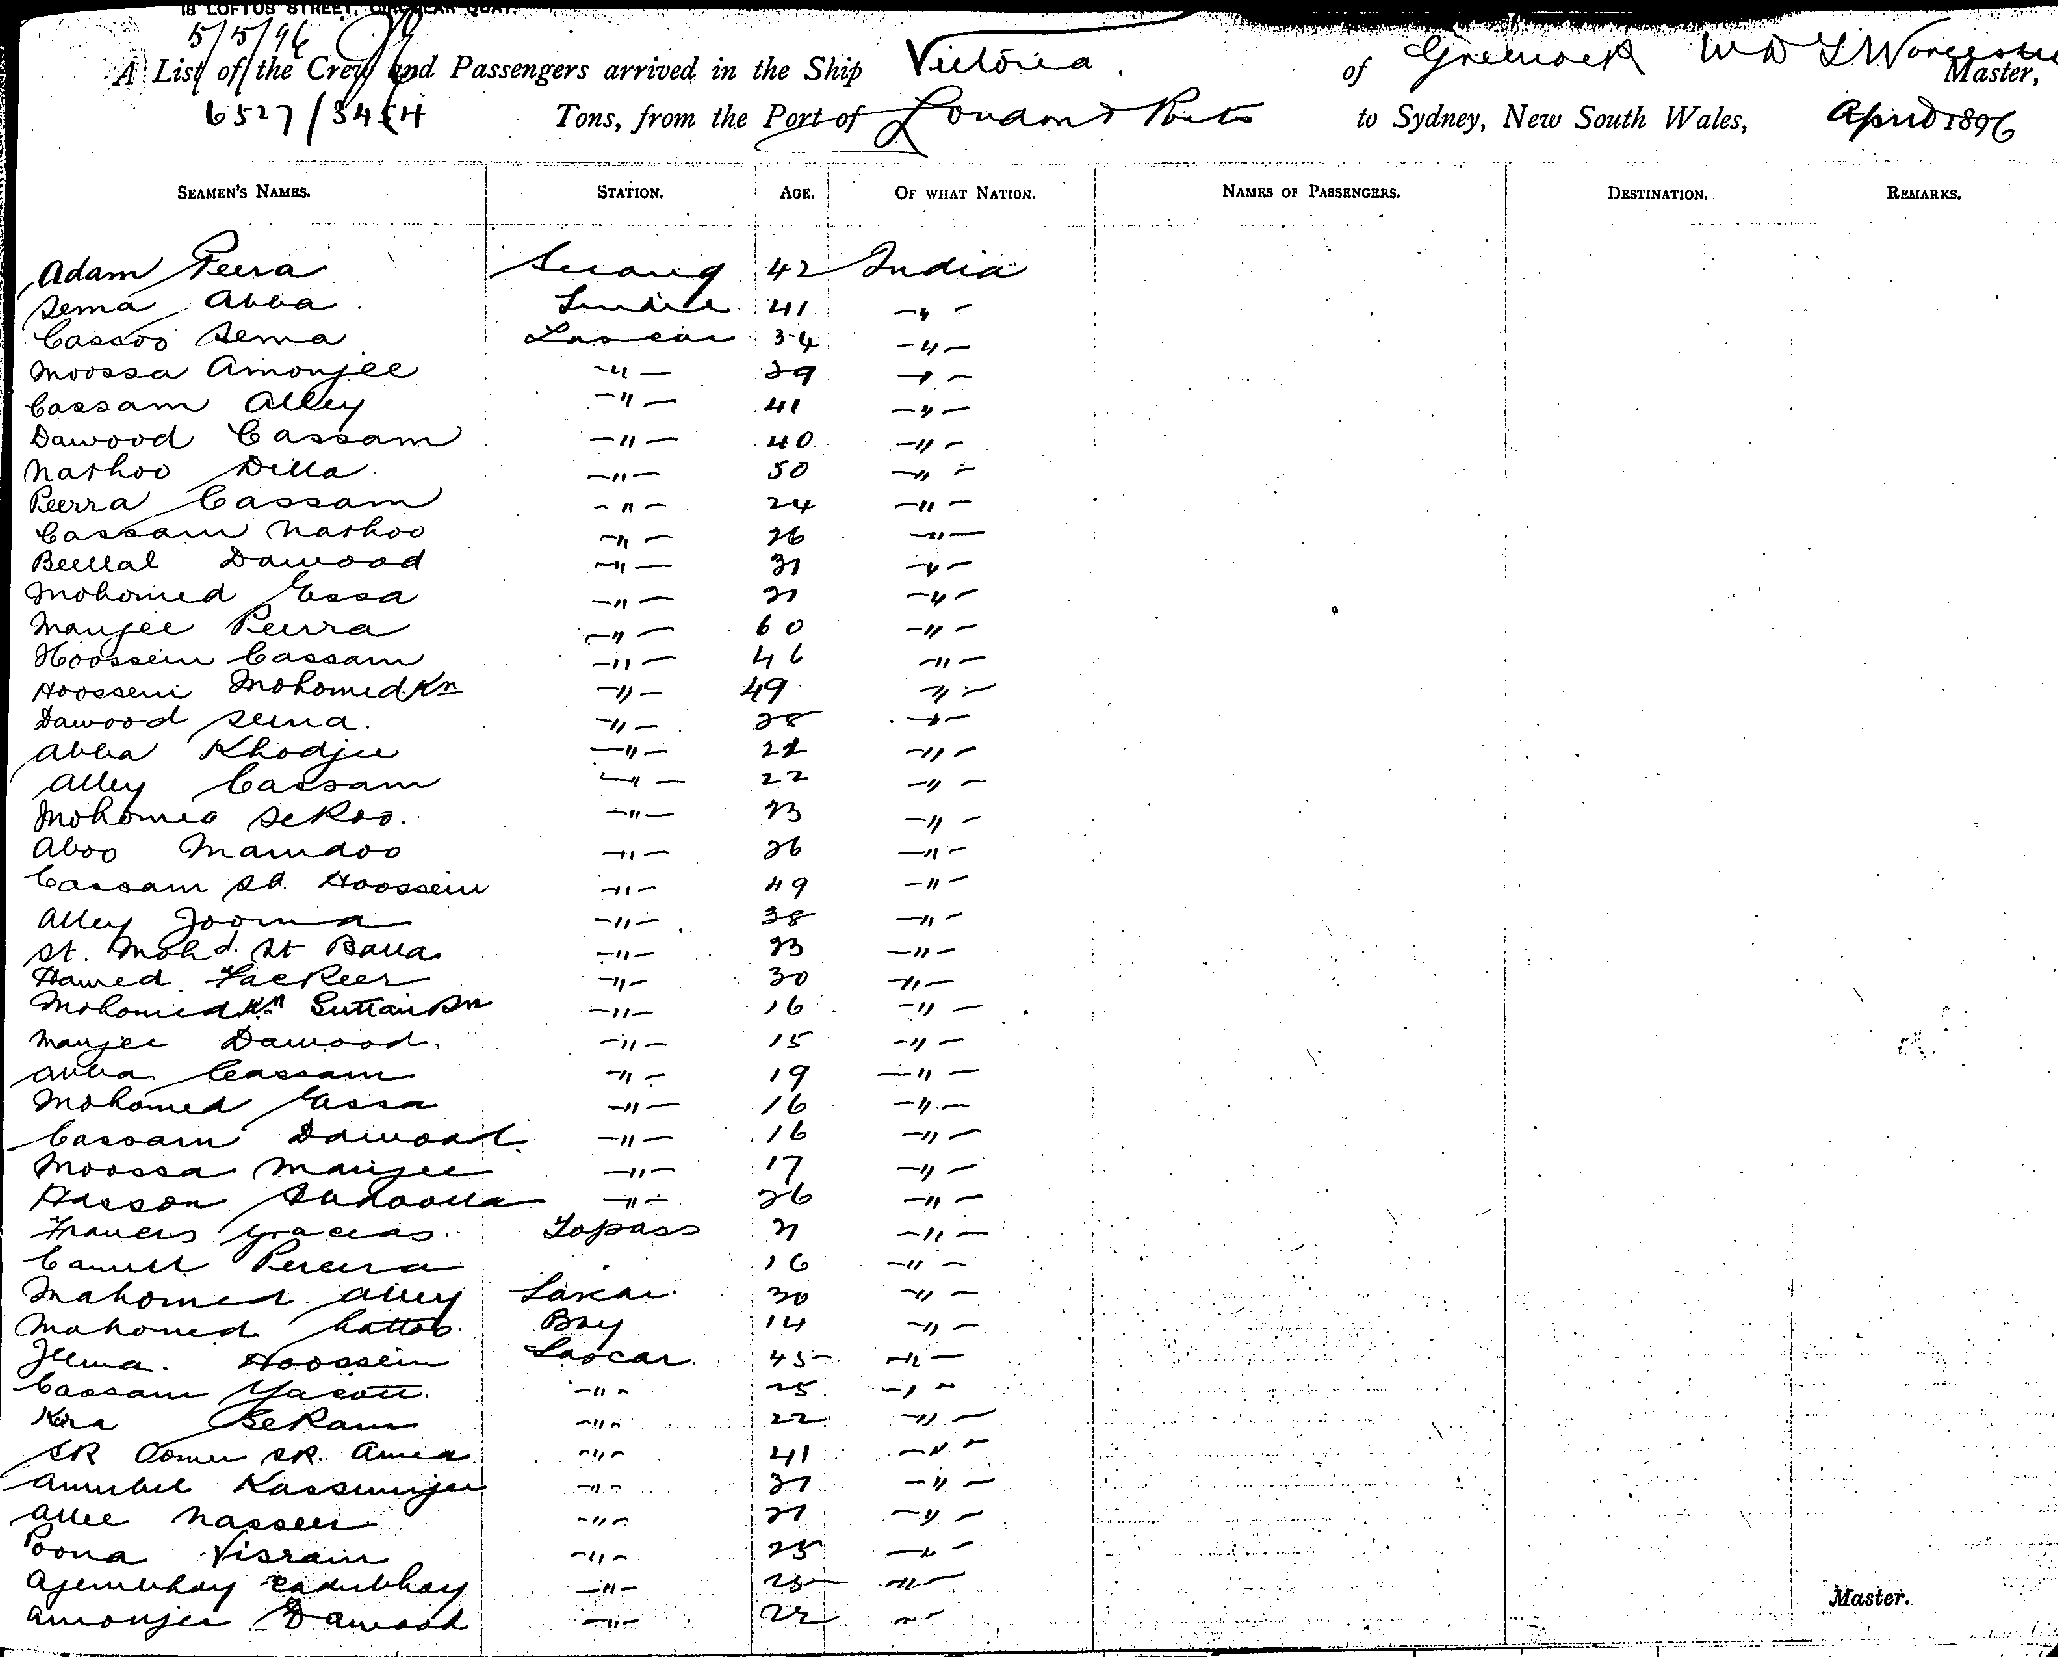 18 LOFTUS STREET, CIRCULAR QUAY.
5/5/96
A List of the Crew and Passengers arrived in the Ship Victoria of Greenock W D L Worcester Master,
6527/3484 Tons, from the Port of London & Ports to Sydney, New South Wales, April 1896
SEAMEN'S NAMES. STATION. AGE. OF WHAT NATION. NAMES OF PASSENGERS. DESTINATION. REMARKS.
Adam Peera Serang 42 India
Sema Abba 41 -"-
Cassoo Sema Lascar 34 -"-
Moossa Amonjee -"- 29 -"-
Cassam Alley -"- 41 -"-
Dawood Cassam -"- 40 -"-
Nathoo Dilla -"- 50 -"-
Peerra Cassam -"- 24 -"-
Cassam Nathoo -"- 26 -"-
Beellal Dawood -"- 31 -"-
Mohomed Essa -"- 21 -"-
Manjee Peerra -"- 60 -"-
Hoossein Cassam -"- 46 -"-
Hoossein Mohomed Kn -"- 49 -"-
Dawood Sema. -"- 28 -"-
Abba Khodjee -"- 22 -"-
Alley Cassam -"- 22 -"-
Mohomed Sekoo. -"- 23 -"-
Aboo Mamdoo -"- 26 -"-
Cassam Sd. Hoossein -"- 49 -"-
Alley Jooma -"- 38 -"-
St. Mohd. St Bawa -"- 23 -"-
Hamed Fackeer -"- 30 -"-
Mohomed Kn Sultan Bn -"- 16 -"-
Manjee Dawood. -"- 15 -"-
Abba Cassam -"- 19 -"-
Mohomed Essa -"- 16 -"-
Cassam Dawood. -"- 16 -"-
Moossa Manjee -"- 17 -"-
Hasson -"- 26 -"-
Francis Gracias. Topass 21 -"-
Pereira 16 -"-
Mahomed Alley Lascar. 30 -"-
Mahomed Boy 14 -"-
Jeema. Hoossein Lascar. 45 -"-
Cassam -"- 25 -"-
Bekam -"- 22 -"-
SK Oomer SK. -"- 41 -"-
-"- 37 -"-
Allee Nasseer -"- 21 -"-
Poona Visram -"- 25 -"-
-"- 25 -"-
Amonjee Dawood -"- 22 -"-
Master.